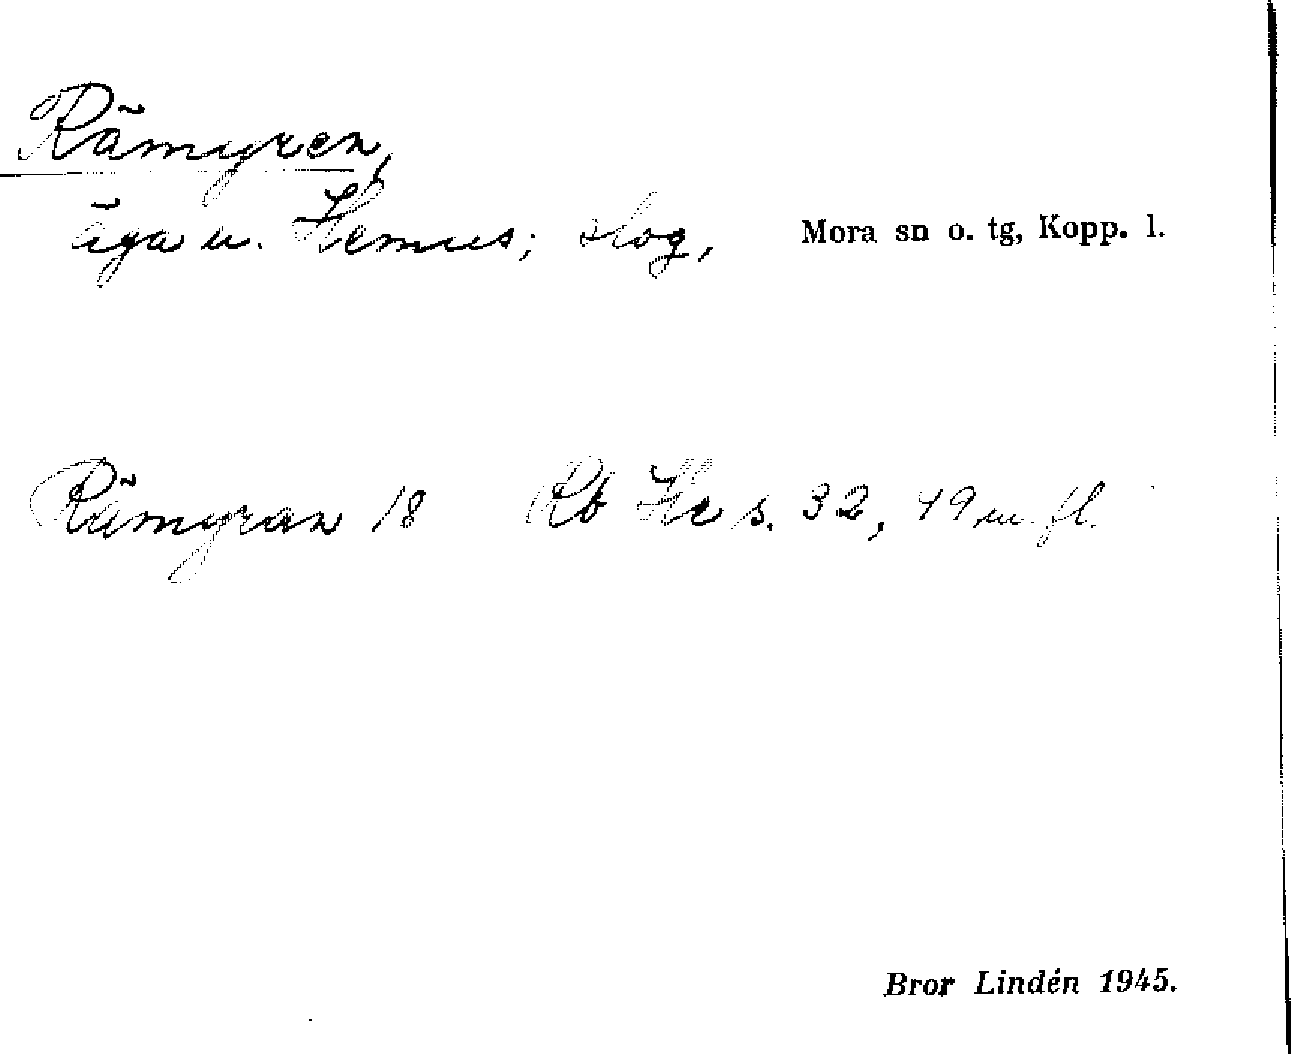 Rämyren,
äga u. Hemus; skog, Mora sn o. tg, Kopp. l.
Rämyran 18 Rb He s. 32, 49 m. fl.
Bror Lindén 1945.